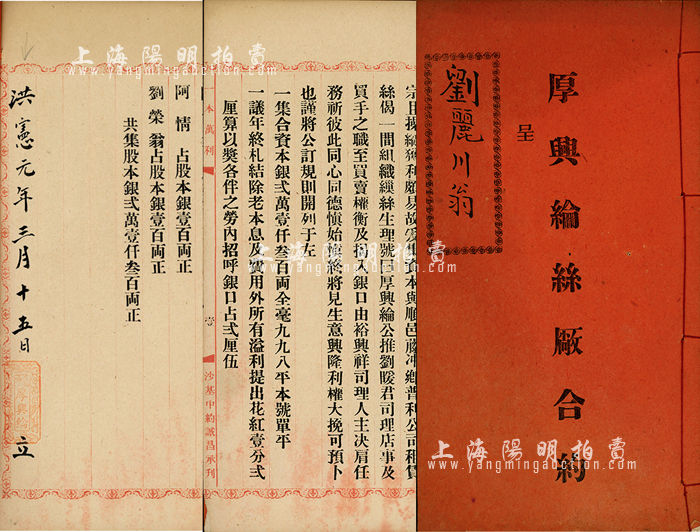 厚興綸絲廠合約
呈
劉麗川翁
絲偈一間組織纙絲生理號曰厚興綸公推劉暖君司理店事及
買手之職至買賣權衡及揭入銀口由裕興祥司理人主决肩任
務祈彼此同心同德慎始慎終將見生意興隆利權大挽可預卜
也謹將公訂規則開列于左
一集合資本銀弍萬壹仟叁百両全毫九九八平本號單平
一議年終札結除老本息及費用外所有溢利提出花紅壹分弍
厘算以奬各伴之勞內招呼銀口占弍厘伍
本萬利
壹
沙基中約誠昌承刊
阿情 占股本銀壹百両正
劉榮翁占股本銀壹百両正
共集股本銀弍萬壹仟叁百両正
洪憲元年三月十五日 立
上海陽明拍賣
www.yangmingauction.com
上海陽明拍賣
www.yangmingauction.com
上海陽明拍賣
www.yangmingauction.com
上海陽明拍賣
www.yangmingauction.com